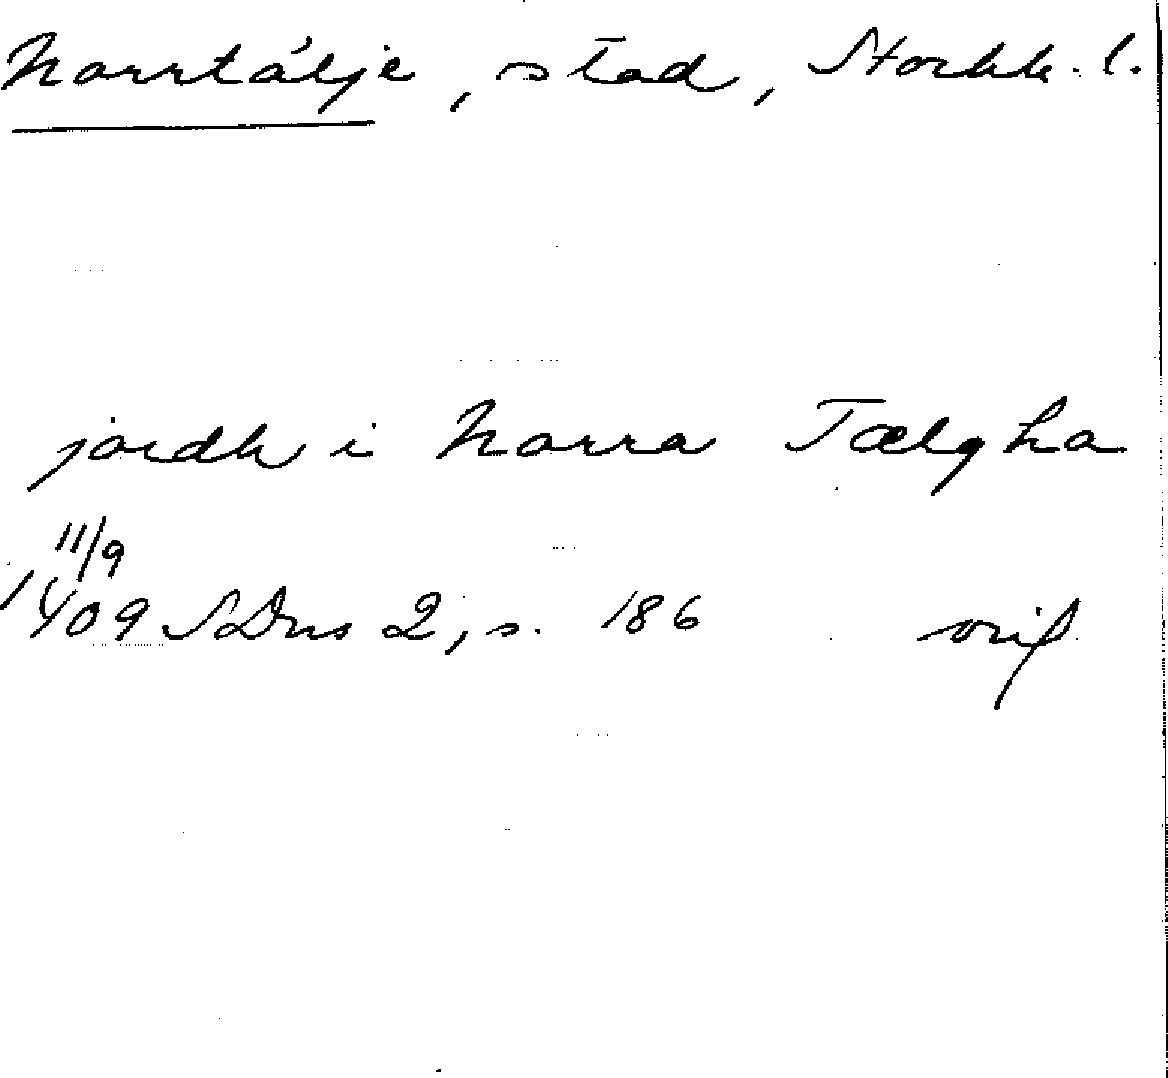 Norrtälje, stad, Stockh. l.
jordh i Norra Tælgha
11/9
1409 SDns 2, s. 186 orig